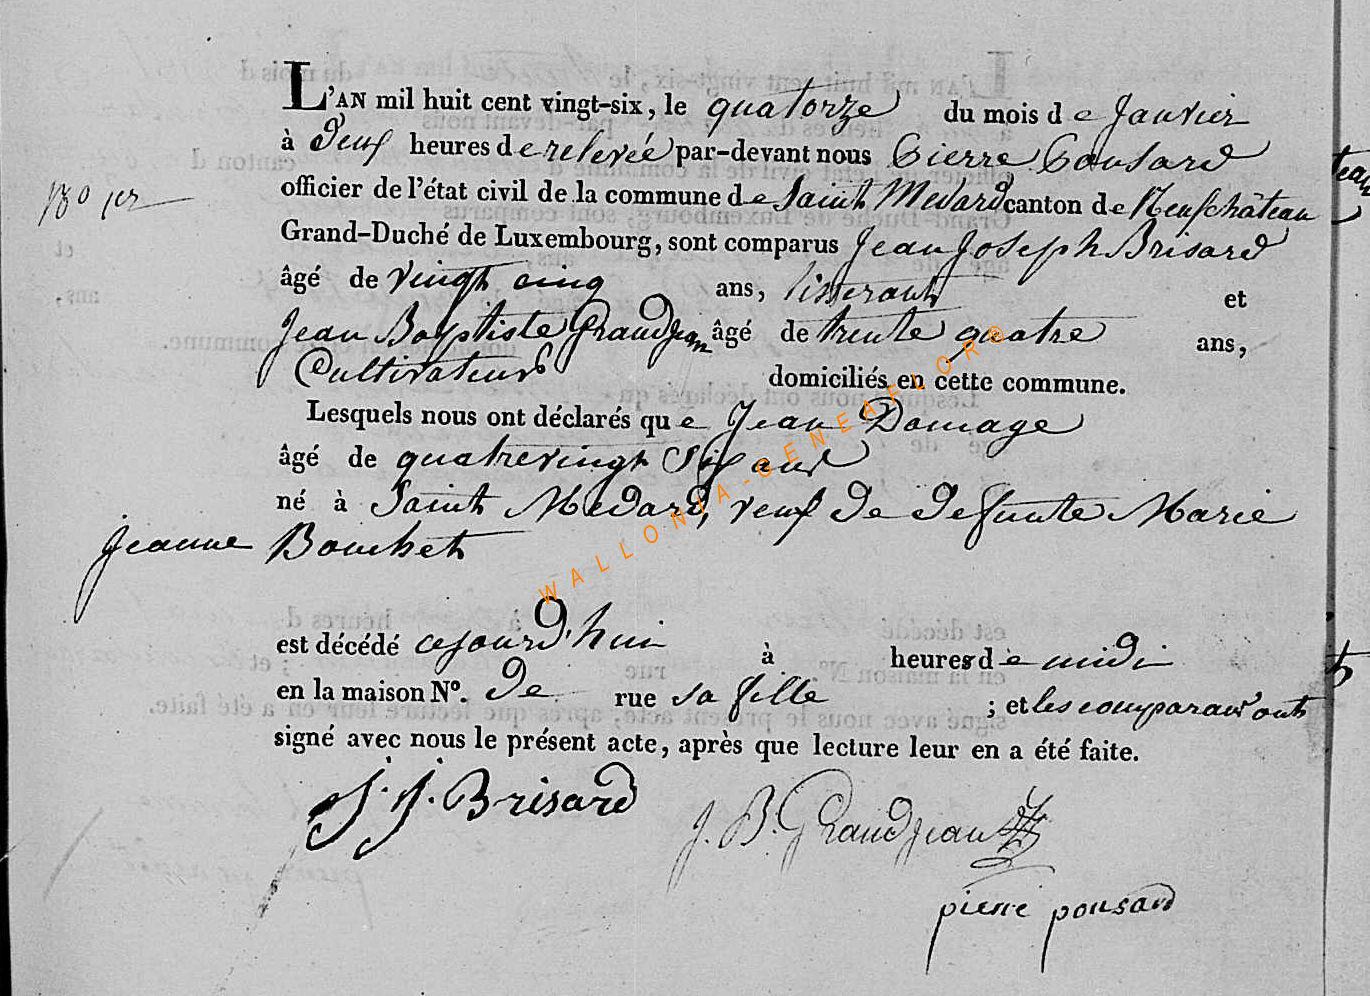 L'AN mil huit cent vingt-six, le quatorze du mois de Janvier
à Deux heures de relevée par-devant nous Pierre Pousard
officier de l'état civil de la commune de Saint Medard canton de Neufchâteau
Grand-Duché de Luxembourg, sont comparus Jean Joseph Brisard
âgé de vingt cinq ans, tisserant et
Jean Baptiste Grandjean âgé de trente quatre ans,
Cultivateurs domiciliés en cette commune.
Lesquels nous ont déclarés que Jean Domage
âgé de quatrevingt Six ans
né à Saint Medard, veuf de defunte Marie
Jeanne Bouchet
est décédé cejourd'hui à heures de midi
en la maison N°. de rue sa fille ; et les comparans ont
signé avec nous le présent acte, après que lecture leur en a été faite.
J. J. Brisard
J. B. Grandjean
pierre pousard
WALLONIA-GENEAFLORE